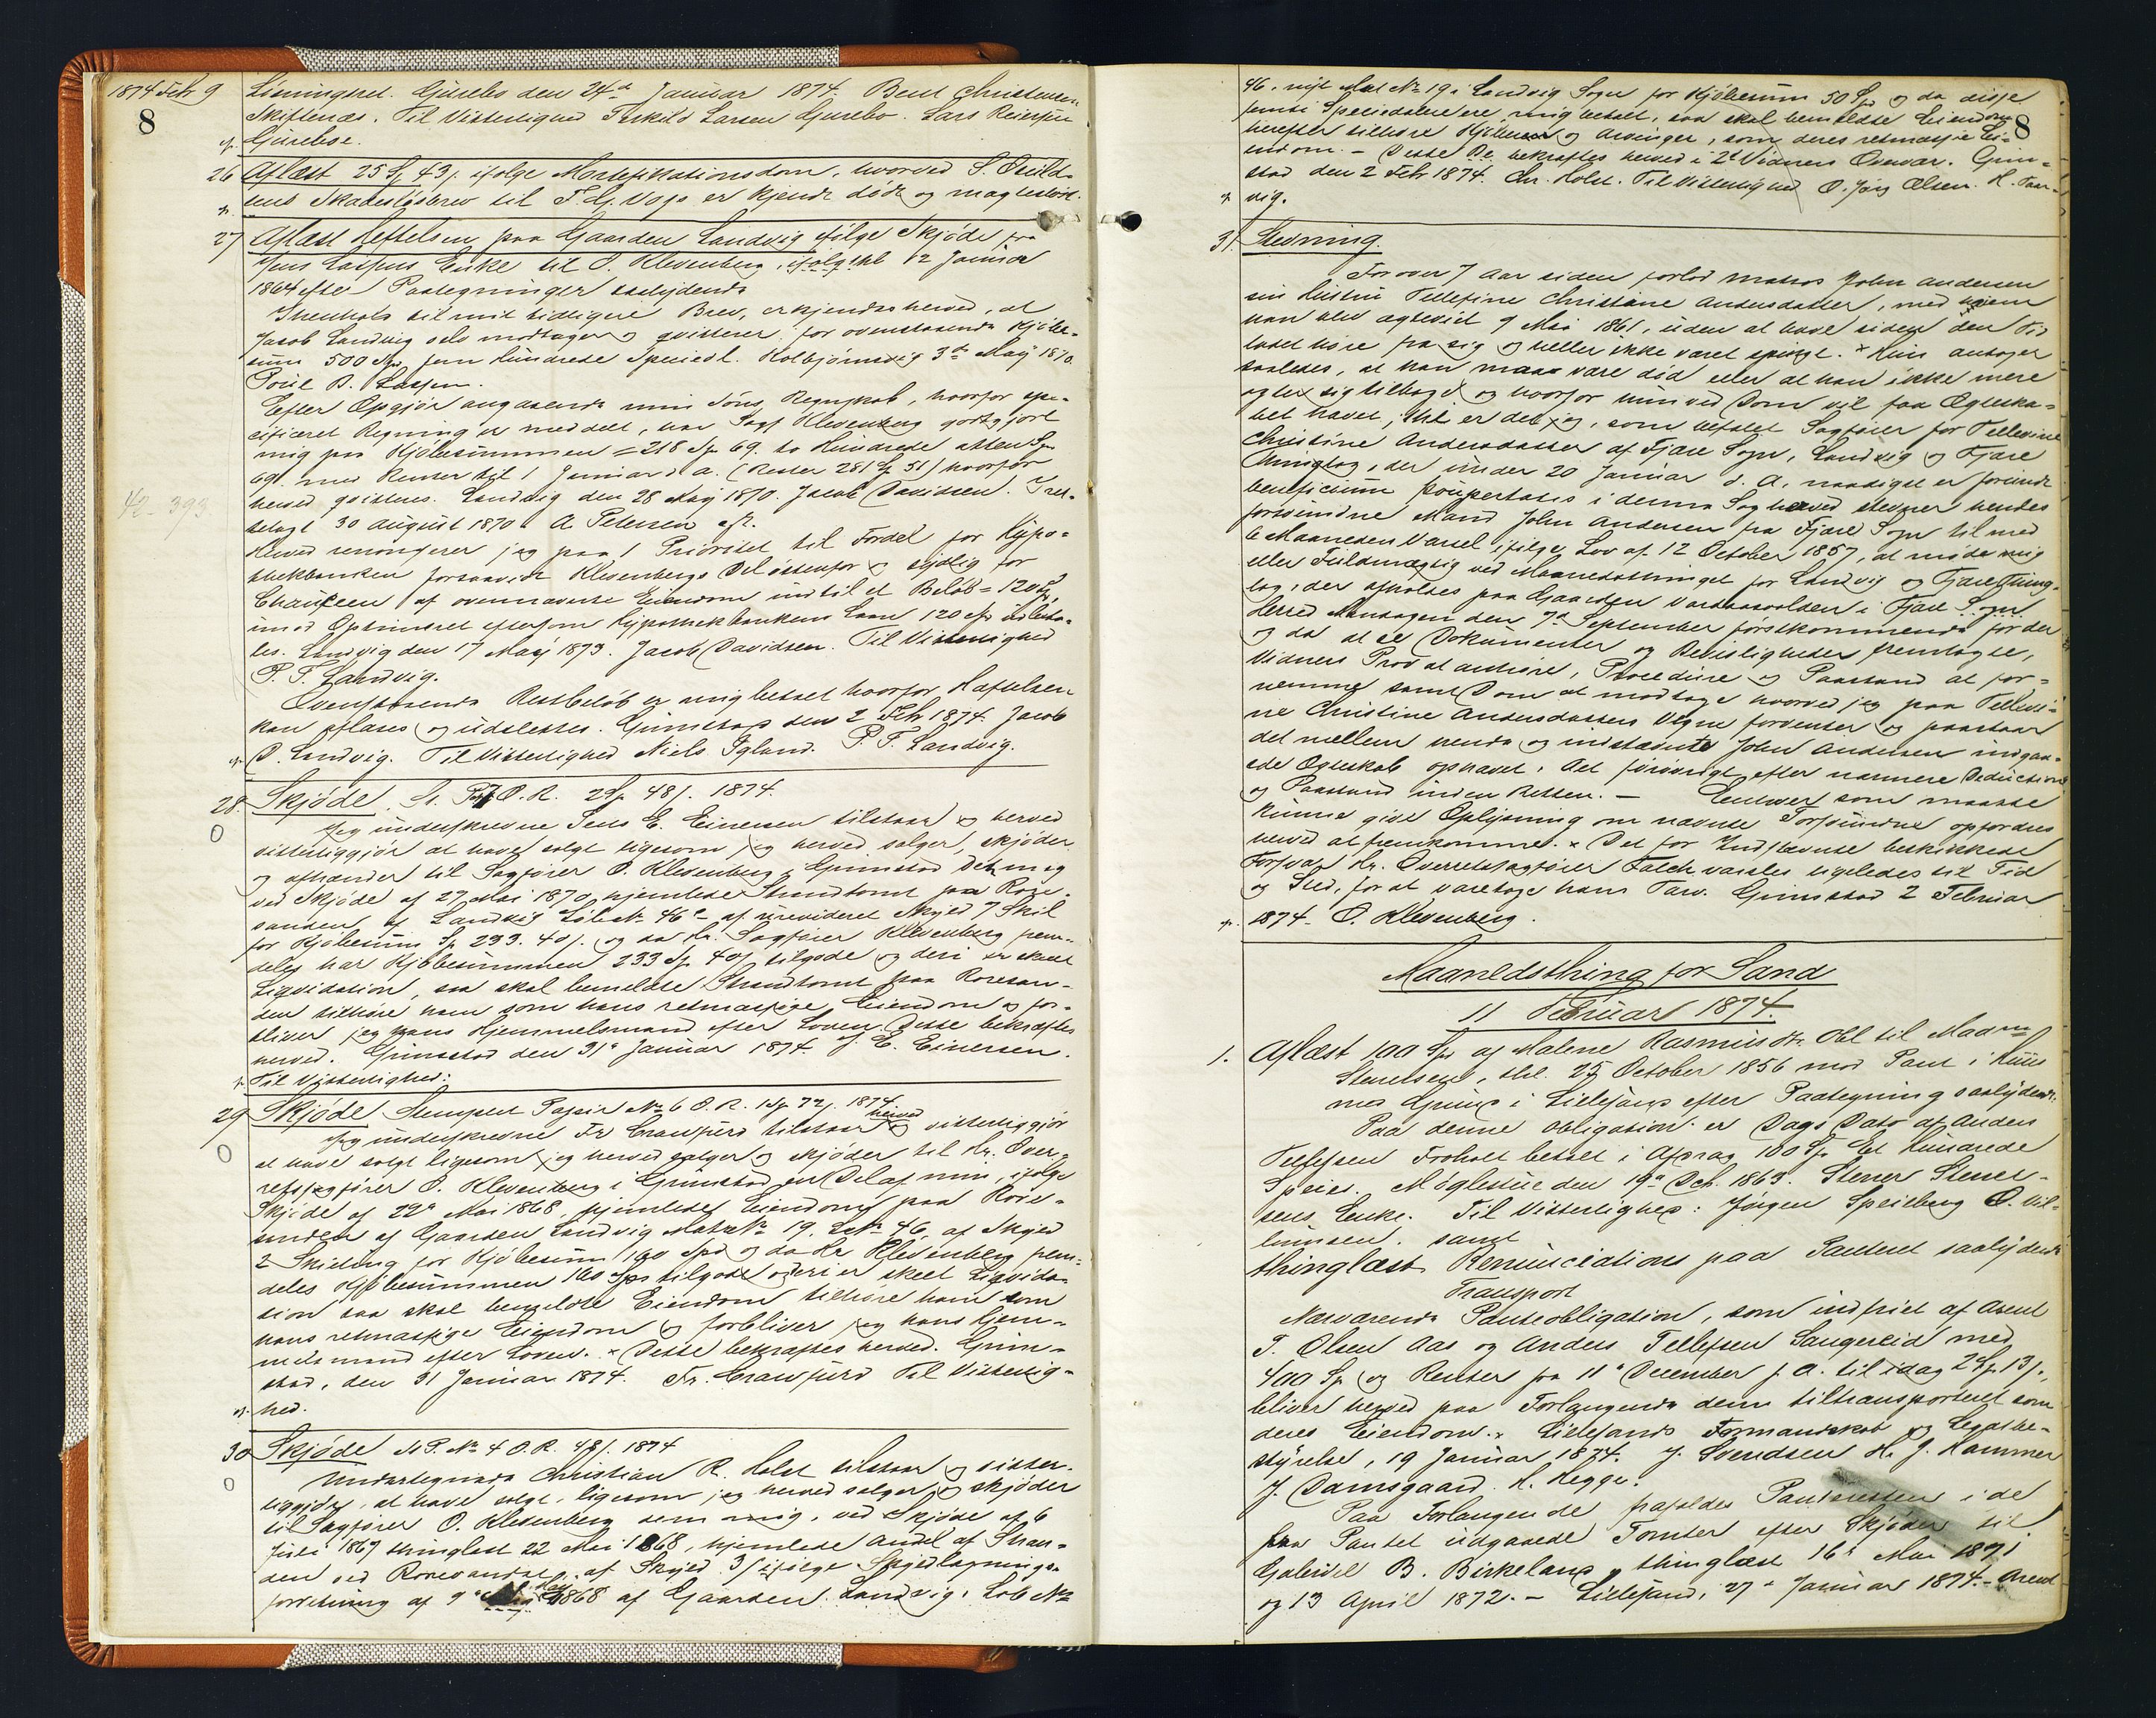 1874 Feb 9
8
Gjurebo den 24de Januar 1874. Bent Christensen
Skiftenæs. Til Vitterlighed Terkild Larsen Gjurebo. Lars Reiersen
Gjurebo.
26 Aflæst 25 Sp 43 s. ifølge Mortifikationsdom, hvorved S.
Skadesløsbrev til er kjendt dødt og magtesløst.
27 Aflæst Heftelsen paa Gaarden Landvig ifølge Skjøde fra
Jens Lassens Enke til O. Klevenberg, thl 12 Januar
1864 efter Paategninger saalydende
I Henhold til mit tidligere Brev, erkjendes herved, at
Jacob Landvig selv modtager og qvitterer for ovenstaaende Kjøbe-
sum 500 Sp, fem Hundrede Speciedl. Kolbjørnsvig 3de May 1870.
Poul B. Lassen.
Efter Opgjør angaaende min Søns Regnskab, hvorfor spe-
cificeret Regning er meddelt, har Sagf Klevenberg godtgjort
mig paa Kjøbesummen = 218 Sp 69. to Hundrede atten Sp
69 s. med Renter til 1 Januar d. A. (Rester 281 Sp 51) hvorfor
herved qvitteres. Landvig den 28 May 1870. Jacob Davidsen. I ret-
telagt 30 August 1870. A Petersen
42-393
Herved renoncerer jeg paa 1 Prioritet til Fordel for Hypo-
thekbanken forsaavidt Klevenbergs Del østenfor og sydlig for
Chauseen af ovennævnte Eiendom indtil et Beløb = 120 Sp,
imod Opkrævet eftersom Hypothekbankens Laan 120 Sp udbeta-
les. Landvig den 17 May 1873. Jacob Davidsen. Til Vitterlighed
P. T. Landvig.
Ovenstaaende Restbeløb er mig betalt hvorfor Haftelsen
kan aflæses og udslettes. Grimstad den 2 Feb 1874. Jacob
D. Landvig. Til Vitterlighed Niels Igland. P. T. Landvig.
28. Skjøde. O. R. 2 Sp 48 s. 1874.
0
Jeg underskrevne Jens E. Einersen tilstaar og herved
vitterliggjør at have solgt ligesom jeg herved sælger, skjøder
og afhænder til Sagfører O. Klevenberg i Grimstad den mig
ved Skjøde af 27 Mai 1870 hjemlede Strandtomt paa Rore-
sanden af Landvig Løbe No 46 af urevideret Skyld 7 Skil
for Kjøbesum Sp 233. 40 s. og da Hr. Sagfører Klevenberg frem-
deles har Kjøbesummen 233 Sp 40 s tilgode og deri er skeet
Liqvidation, saa skal bemeldte Strandtomt paa Roresan-
den tilhøre ham som hans retmæssige Eiendom og for-
bliver jeg hans Hjemmelsmand efter Loven. Dette bekræftes
herved. Grimstad den 31te Januar 1874. J. E. Einersen.
Til Vitterlighed:
29 Skjøde Stemplet Papir No 6 O. R. 1 Sp 72 s. 1874
0
herved
Jeg underskrevne Fr Crawfurd tilstaar og vitterliggjør
at have solgt ligesom jeg herved sælger og skjøder til Hr. Over-
retssagfører O. Klevenberg i Grimstad en Del af min, ifølge
Skjøde af 22de Mai 1868, hjemlede Eiendom paa Rore-
sanden af Gaarden Landvig Matr No 19. Løbe No 46, af Skyld
2 Skilling for Kjøbesum 160 Spd og da Hr Klevenberg frem-
deles Kjøbesummen 160 Spd tilgode og deri er skeet Liqvida-
tion saa skal bemeldte Eiendom tilhøre ham som
hans retmæssige Eiendom og forbliver jeg hans Hjem-
melsmand efter Loven. Dette bekræftes herved. Grim-
stad, den 31 Januar 1874. Fr. Crawfurd Til Vitterlig-
hed.
30 Skjøde St P. No 4 O. R. 48 s. 1874
0
Undertegnede Christian R. Holst tilstaar og vitter-
liggjør, at have solgt, ligesom jeg herved sælger og skjøder
til Sagfører O. Klevenberg den mig, ved Skjøde af 6
Juli 1867 thinglæst 22 Mai 1868, hjemlede Andel af Stran-
den ved Roresanden, af Skyld 3 s ifølge Skyldlægnings-
forretning af 9de May 1868 af Gaarden Landvig, Løb No
8
46, nyt Mat No 19, Landvig Sogn for Kjøbesum 50 Sp og da disse
femti Speciedalere ere mig betalt, saa skal bemeldte Eiendom
herefter tilhøre Kjøberen og Arvinger, som deres retmæssige Ei-
endom. - Dette bekræftes herved i 2de Vidners Overvær. Grim-
stad den 2 Feb 1874. Chr. Holst. Til Vitterlighed O. Jørg Olsen. H. Taar-
vig.
31. Stevning.
For over 7 Aar siden forlod Matros John Andersen
sin Hustru Tellefine Christine Andersdatter, med hvem
han blev ægteviet 9 Mai 1861, uden at have siden den Tid
ladet høre fra sig og heller ikke været spurgt. Hun antager
saaledes, at han maa være død eller at han ikke mere
agter sig tilbage og hvorfor hun ved Dom vil faa Ægteska-
bet hævet, thi er det jeg, som befalet Sagfører for Tellevine
Christine Andersdatter af Fjære Sogn, Landvig og Fjære
Thinglag, der under 20 Januar d. A. naadigst er forundt
beneficium paupertatis i denne Sag herved stevner hendes
forsvundne Mand John Andersen fra Fjære Sogn til med
6 Maaneders Varsel ifølge Lov af 12 October 1857, at møde mig
eller Fuldmægtig ved Maanedsthinget for Landvig og Fjære Thing-
lag, der afholdes paa Gaarden Vardaasvolden i Fjære Sogn
dersted Mandagen den 7de September førstkommende for der
og da at see Dokumenter og Beviisligheder fremlagte,
Vidners Prov at anhøre, Procedure og Paastand at for-
nemme samt Dom at modtage hvorved jeg paa Tellevi-
ne Christine Andersdatters Vegne forventer og paastaar
det mellem hende og indstævnte John Andersen indgaa-
ede Ægteskab ophævet, Alt forøvrigt efter nærmere Deduction
og Paastand inden Retten. - Enhver som maatte
kunne give Oplysning om nævnte Forsvundne opfordres
herved at fremkomme. Det for Indstævnte beskikkede
Forsvar Hr. Overretssagfører Falch varsles ligeledes til Tid
og Sted, for at varetage hans Tarv. Grimstad 2 Februar
1874. O. Klevenberg.
Maanedsthing for Sand
11 Februar 1874.
1. Aflæst 100 Sp af Malene Rasmusdtr. Obl til Madm
Stenelsen, thl. 25 October 1856 med Pant i Huus
med Grund i Lillesand efter Paategning saalydende:
Paa denne Obligation er Dags Dato af Anders
Tellefsen Froholt betalt i Afdrag 100 Sp. Et Hundrede
Specier. Møglestue den 19de Oct. 1863. Stener Stenel-
sens Enke. Til Vitterlighed: Jørgen Speilberg O. Vil-
lumsen. samt
thinglæst Renunciation paa Panteret saalydende
Transport
Nærværende Panteobligation, som indfriet af Arent
T. Olsen Aas og Anders Tellefsen Saugereid med
400 Sp og Renter fra 11te December f. A. til idag 2 Sp 13 s.,
bliver herved paa Forlangende dem tiltransporteret som
deres Eiendom. Lillesands Formandskab og Legatbe-
styrelse, 19 Januar 1874. J. Svendsen H. J. Hammer
J. Damsgaard. H. Hegge.
Paa Forlangende frafaldes Panteretten i de
fra Pantet udgaaede Tomter efter Skjøder til
Gabriel B. Birkeland thinglæst 16de Mai 1871
og 13 April 1872. - Lillesand, 27de Januar 1874. - Arent